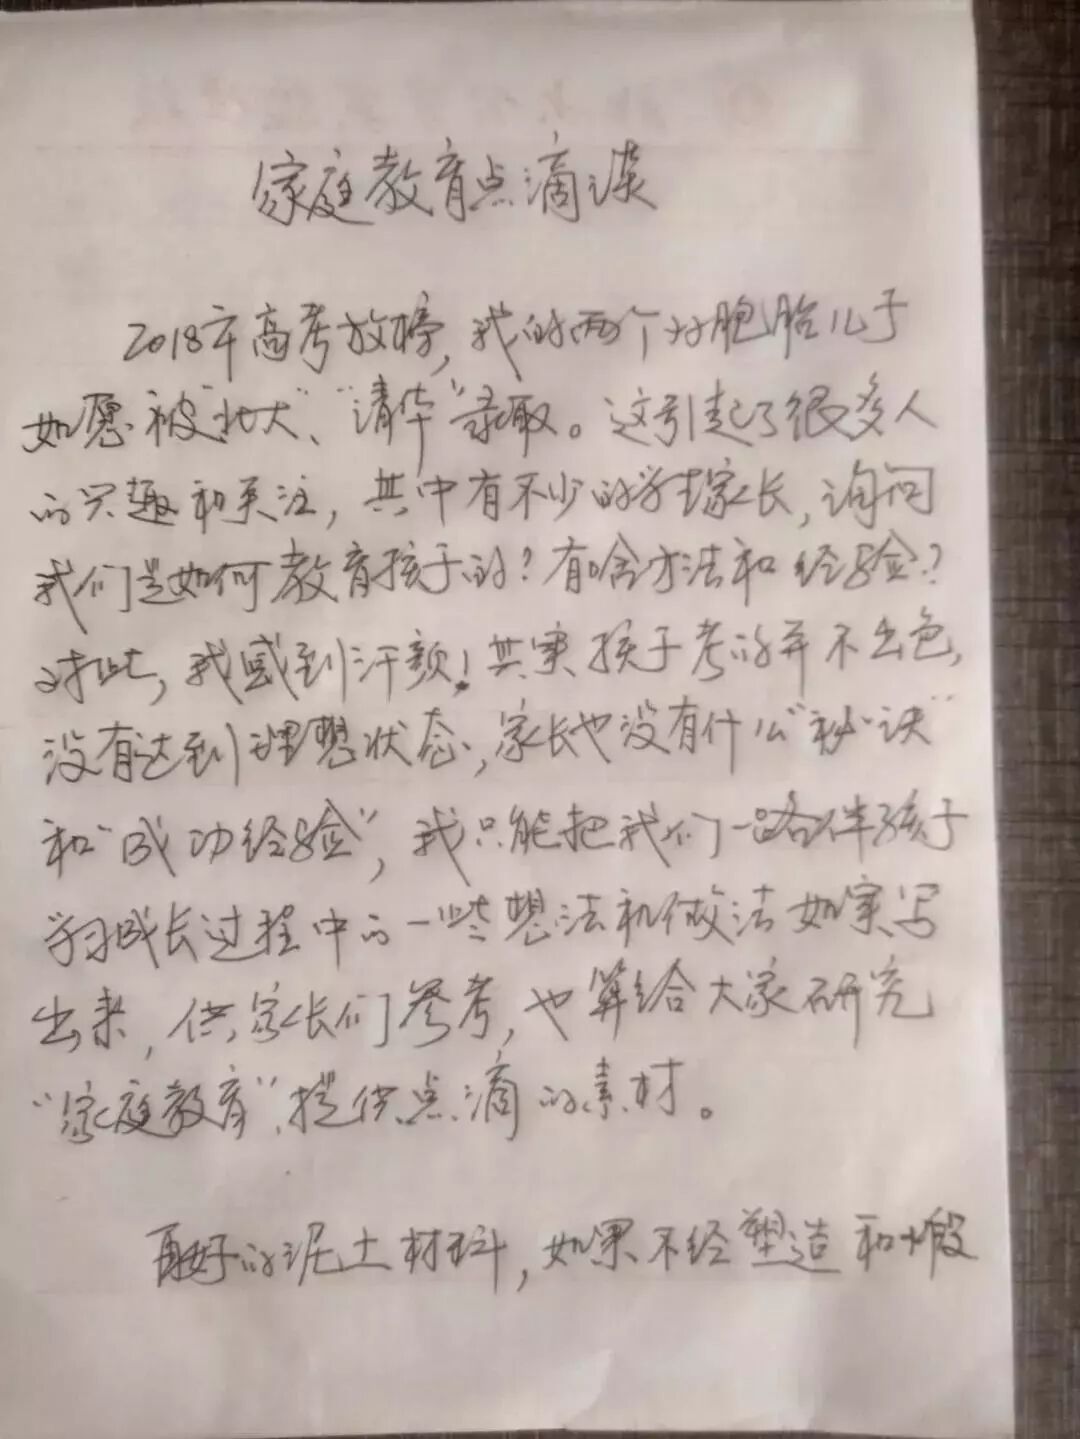 家庭教育点滴谈
2018年高考放榜,我的两个双胞胎儿子
如愿被"北大"、"清华"录取。这引起了很多人
的兴趣和关注,其中有不少的学生家长,询问
我们是如何教育孩子的?有啥方法和经验?
对此,我感到汗颜!其实孩子考的并不出色,
没有达到理想状态,家长也没有什么"秘诀"
和"成功经验",我只能把我们一路伴孩子
学习成长过程中的一些想法和做法如实写
出来,供家长们参考,也算给大家研究
"家庭教育",提供点滴的素材。
再好的泥土材料,如果不经塑造和煅